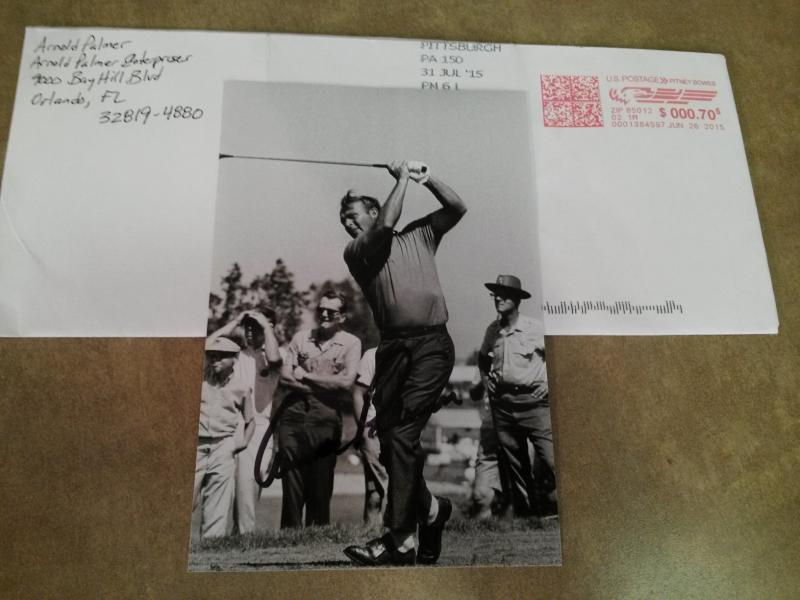 Arnold Palmer
Arnold Palmer Enterprises
9000 Bay Hill Blvd
Orlando, FL
32819-4880
PITTSBURGH
PA 150
31 JUL '15
PN 6 L
U.S. POSTAGE >> PITNEY BOWES
ZIP 85012 $ 000.70⁵
02 1R
0001384597 JUN 26 2015